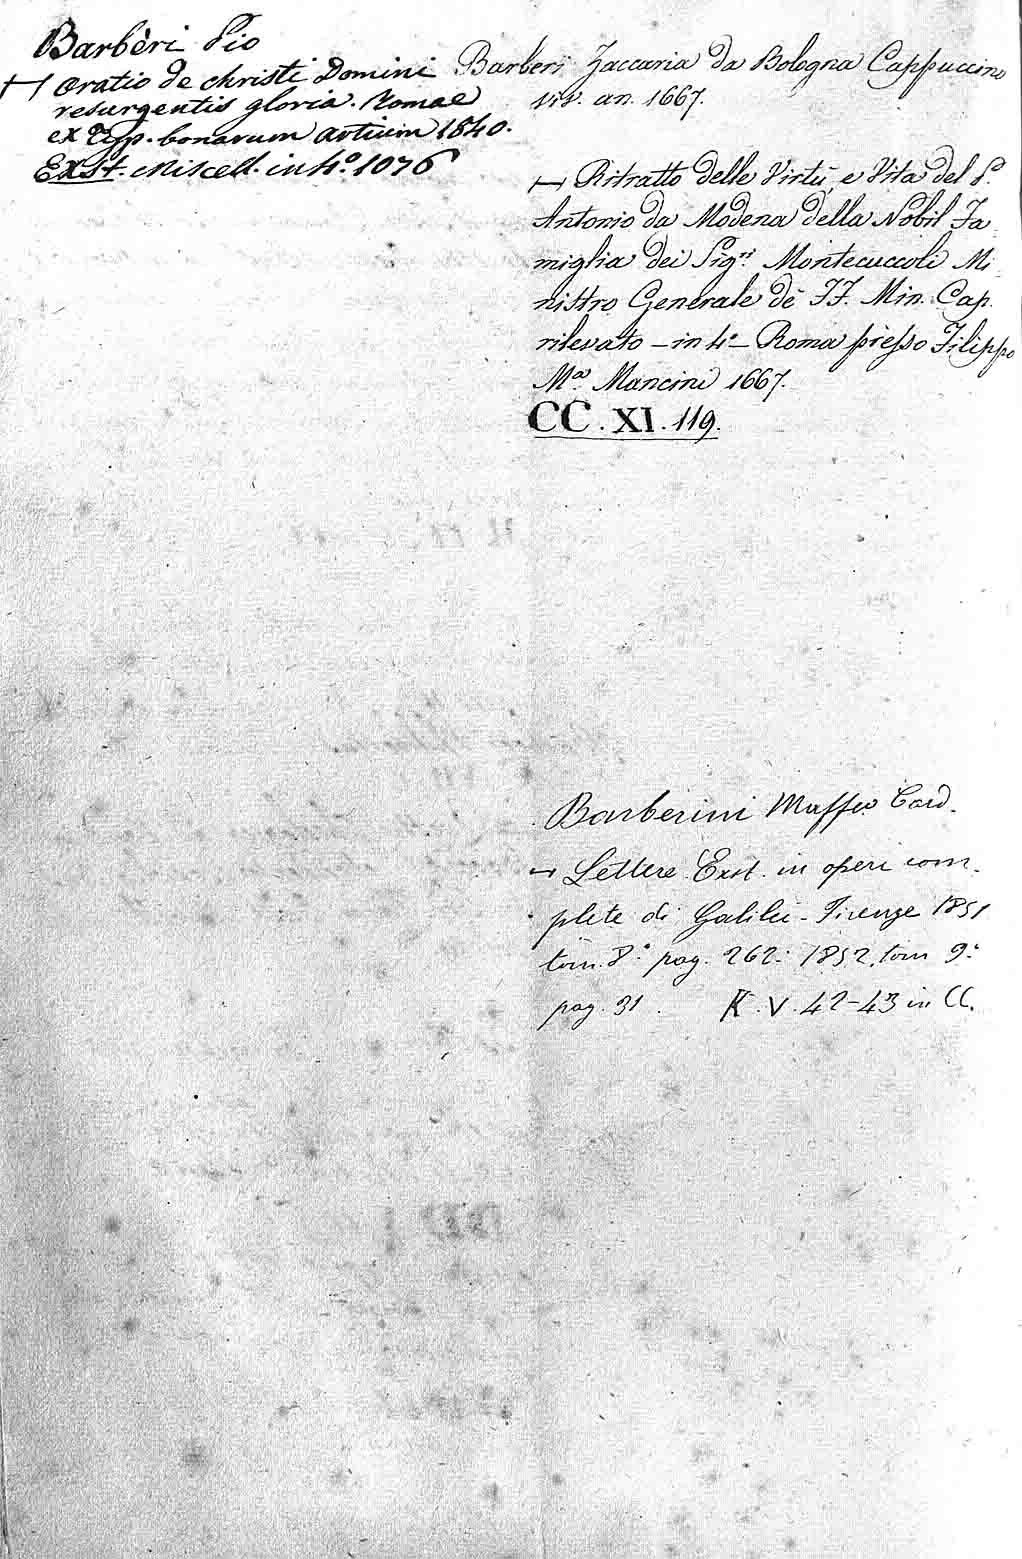 Barbèri Pio
⊢ Oratio de Christi Domini
resurgentis gloria. Romae
ex Typ. bonarum artium 1840.
Exst. Miscell. in 4.º 1076
Barberi Zaccaria da Bologna Cappuccino
viv. an. 1667.
⊢ Ritratto delle Virtù, e Vita del P.
Antonio da Modena della Nobil Fa-
miglia dei Sig.ri Montecuccoli Mi-
nistro Generale dè FF. Min. Cap.
rilevato – in 4.º – Roma presso Filippo
M.ª Mancini 1667.
CC. XI. 119.
Barberini Maffeo Card.
⊢ Lettere. Exst. in operi com-
plete di Galilei - Firenze 1851
tom. 8.º pag. 262: 1852, tom 9.º
pag. 31. K. V. 42-43 in CC.